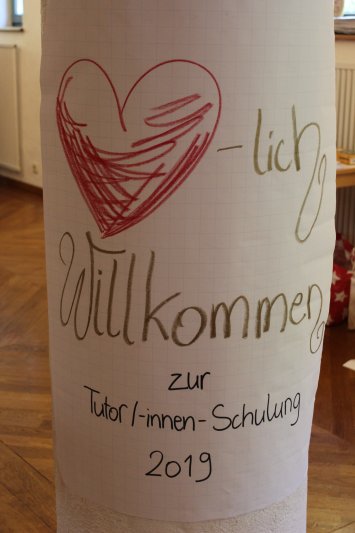 -lich
Willkommen
zur
Tutor/-innen-Schulung
2019